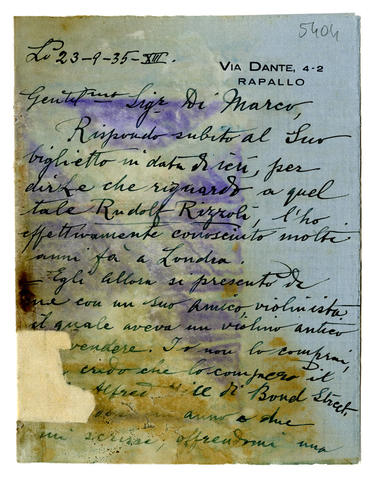 5404
Lì 23-9-35-XIII.
VIA DANTE, 4-2
RAPALLO
Gentilmo Sigr Di Marco,
Rispondo subito al Suo
biglietto in data di ieri, per
dirLe che riguardo a quel
tale Rudolf Rizzoli, l'ho
effettivamente conosciuto molti
anni fa a Londra
- Egli allora si presentò da
me con un suo amico violinista,
il quale aveva un violino antico
vendere. Io non lo comprai,
credo che lo comperò il
Alfred di Bond Street.
anno o due
mi scrisse, offrendomi una